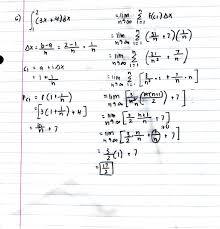 6) ∫₁² (3x+4)dx
Δx = b-a/n = 2-1/n = 1/n
ci = a + iΔx
= 1 + i 1/n
f(1+i/n)
= [3(1+i/n)+4]
= 3i/n + 7
= lim n→∞ Σ i=1 n f(ci) Δx
= lim n→∞ Σ i=1 n (3i/n + 7)(1/n)
= lim n→∞ Σ i=1 n (3i/n² + 7/n)
= lim n→∞
= lim n→∞ [3/n² · n(n+1)/2 + 7]
= lim n→∞ [3/2 · n+1/n + 7]
= lim n→∞
= 3/2 (1) + 7
= 17/2